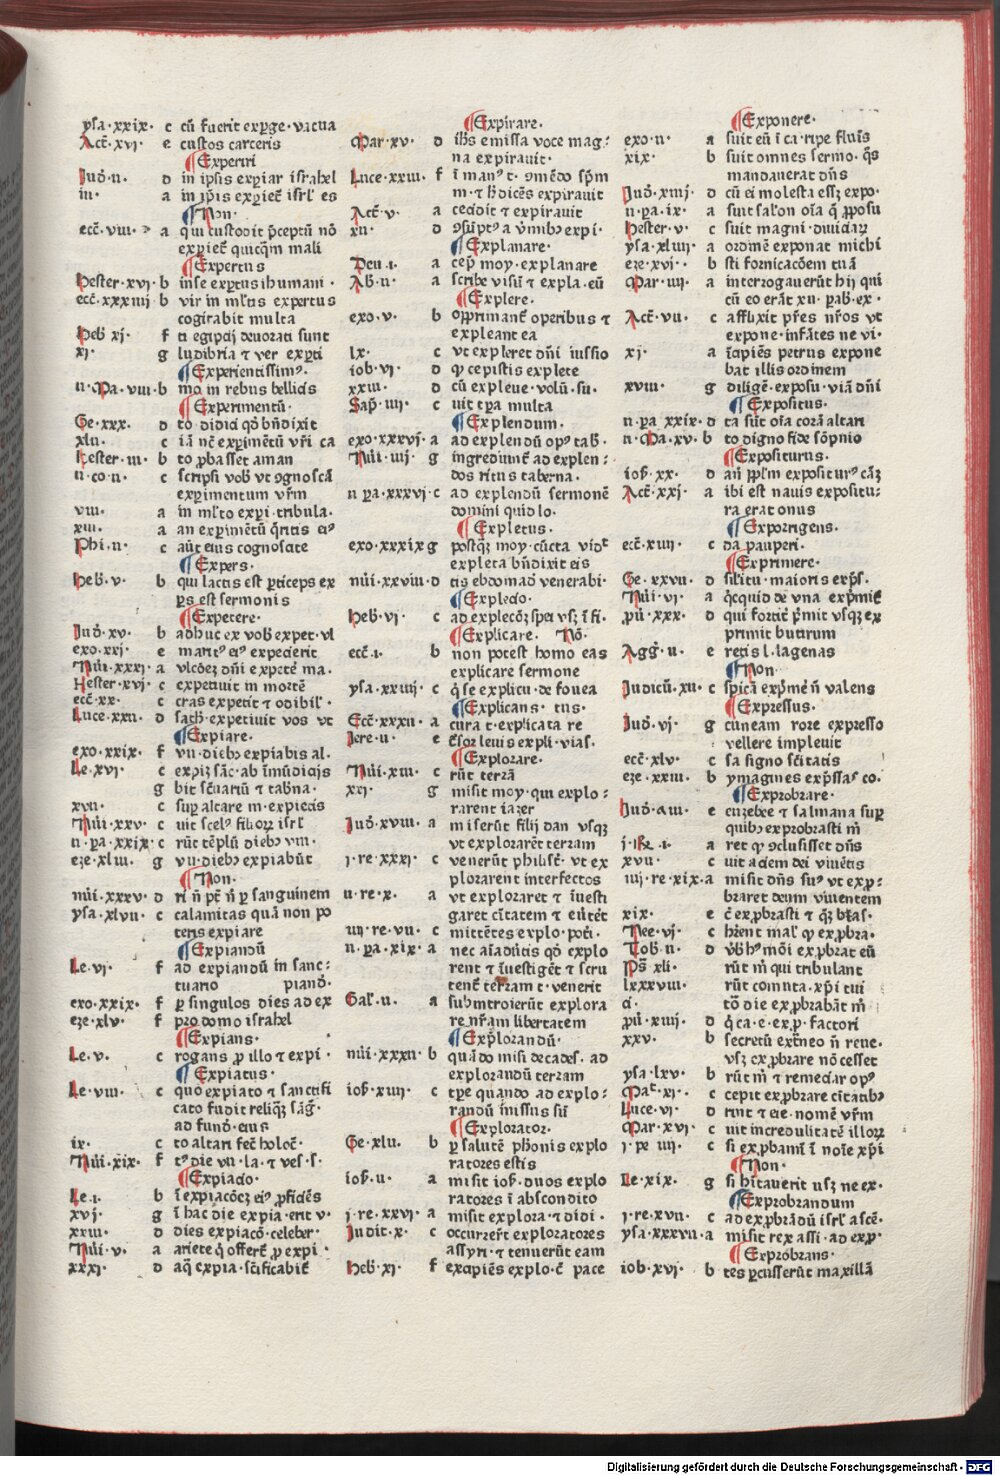 ysa·xxix· c cū fuerit exp̄ge·vacua
Act̄·xvj· e custos carceris
¶Experiri
Jud̄·ii· d in ipsis experiar israhel
iii· a in ip̄is exp̄iret̄ isrl̄ es
¶Non·
ecc̄·viii· a qui custodit p̄ceptū nō
exp̄iet̄ quicq̄m mali
¶Expertus
Hester·xvj· b inse exp̄tus ihumani·
ecc̄·xxxiiij b vir in ml̄tis expertus
cogitabit multa
Heb̄ xj· f ti egiptij deuorati sunt
xj· g ludibria ⁊ ver exp̄ti
¶Experientissimꝰ·
ii·Ma·viii· b mo in rebus bellicis
¶Experimentū·
Ge·xxx· d to didici qd̄ bn̄dixit
xlii· c iā nc̄ exp̄imētū vr̄i ca
Hester·iii· b to ꝓbasset aman
ii·co·ii· c scripsi vob̄ vt ꝯgnoscā
exp̄imentum vr̄m
viii· a in ml̄to exp̄i·tribula·
xiii· a an exp̄imētū q̄ritis eiꝰ
Phi·ii· c aūt eius cognoscite
¶Expers·
Heb̄·v· b qui lactis est ꝑticeps ex
ꝑs est sermonis
¶Expetere·
Jud̄·xv· b adhuc ex vob̄ expet·vl
exo·xxj· e maritꝰ eiꝰ expecierit
Nūi·xxxj· a vlcōeȝ dn̄i expetē ma·
Hester·xvj· c expetiuit in mortē
ecc̄·xx· c cras expetit ⁊ odibil̄·
Luce·xxii· d sath̄·expetiuit vos vt
¶Expiare·
exo·xxix· f vii·diebꝫ expiabis al·
Le·xvj· c expiȝ sāc̄·ab īmūdicijs
g bit sc̄uariū ⁊ tab̄na·
xvii· c suꝑ altare m·expietis
Nūi·xxv· c uit scelꝰ filioꝝ isrl̄
ii·pa·xxix· c rūt tēplū diebꝫ viii·
eze·xliii· g vii·diebꝫ expiabūt
¶Non·
nūi·xxxv· d ri n̄ pt̄ n̄ ꝑ sanguinem
ysa·xlvii· c calamitas quā non po
teris expiare
¶Expiandū
Le·vj· f ad expiandū in sanc⸗
tuario piand̄·
exo·xxix· f ꝑ singulos dies ad ex
eze·xlv· f pro domo israhel
¶Expians·
Le·v· c rogans ꝓ illo ⁊ expi·
¶Expiatus·
Le·viii· c quo expiato ⁊ sanctifi
cato fudit reliqȝ sāḡ·
ad fund̄·eius
ix· c to altari fec̄ holoc̄·
Nūi·xix· f tꝰ die vii·la·⁊ ves·s·
¶Expiacio·
Le·i· b ī expiacōeȝ eiꝰ ꝓficiēs
xvj· g ī hac die expia·erit v·
xxiii· d dies expiacō·celeber·
Nūi·v· a ariete q̄ offert̄ ꝓ expi·
xxxj· d aq̄ expia·sc̄ificabit̄
¶Expirare·
Mar·xv· d ih̄s emissa voce mag⸗
na expirauit·
Luce·xxiii· f ī manꝰ t·ꝯmēdo sp̄m
m·⁊ h̄ dicēs expirauit
Act̄·v· a cecidit ⁊ expirauit
xii· d ꝯsūptꝰ a v̄mibꝫ expi·
¶Explanare·
Deu·i· a cep̄ moy·explanare
Ab̄·ii· a scribe visū ⁊ expla·eū
¶Explere·
exo·v· b opprimant̄ operibus ⁊
expleant ea
lx· c vt expleret dn̄i iussio
iob·vj· d ꝙ cepistis explete
xxiii· d cū expleue·volū·su·
Sap̄·iiij· c uit tꝑa multa
¶Explendum·
exo·xxxvj· a ad explendū opꝰ tab̄·
Nūi·iiij· g ingrediunt̄ ad explen⸗
dos ritus taberna·
ii pa·xxxvj· c ad explendū sermonē
domini quid lo·
¶Expletus·
exo·xxxix g postqȝ moy·cūcta vidᵗ
expleta bn̄dixit eis
nūi·xxviii·d tis ebdomad̄ venerabi·
¶Expledo·
Heb̄·vj· c ad explecōȝ spei vsȝ ī fi·
¶Explicare· Nō·
ecc̄·i· b non potest homo eas
explicare sermone
ysa·xxiiij· c q̄ se explicu·de fouea
¶Explicans· tus·
Ecc̄·xxxii· a cura t·explicata re
Jere·ii· e c̄sor leuis expli·vias·
¶Explorare·
Nūi·xiii· c rūt terrā
xxj· g misit moy·qui explo⸗
rarent iazer
Jud̄·xviii· a miserūt filij dan vsqȝ
vt explorarēt terram
j·re·xxxj· c venerūt philist̄·vt ex
plorarent interfectos
ii·re·x· a vt exploraret ⁊ īuesti
garet ciītatem ⁊ eu̅tēt
iiij·re·vii· c mittētes explo·poti·
ii·pa·xix· a nec aīaduītis qd̄ explo
rent ⁊ īuestigēt ⁊ scru
tent̄ terram t·venerīt
Gal̄·ii· a submtroierūt explora
re nr̄am libertatem
¶Explorandū·
nūi·xxxii· b quādo misi decades·ad
explorandū terram
ioh̄·xiiij· c tpe quando ad explo⸗
randū īmissus sū
¶Explorator·
Ge·xlii· b ꝑ salutē pharonis explo
ratores estis
ioh̄·ii· a misit ioh̄·duos explo
ratores ī abscondito
j·re·xxvj· a misit explora·⁊ didi·
Judit·x· c occurrer̄t exploratores
assyri·⁊ tenuerūt eam
Heb̄·xj· f excipiēs explo·c̄ pace
¶Exponere·
exo·ii· a suit eū ī ca·ripe fluīs
xix· b suit omnes sermo·q̄s
mandauerat dn̄s
Jud̄·xiiij· d cū ei molesta esȝ expo·
ii·pa·ix· a suit salon oīa q̄ ꝓposu
Hester·v· c suit magni·diuiciaꝝ
ysa·xliiij· a ordinē exponat michi
eze·xvj· b sti fornicacōem tuā
Mar·iiij· a interrogauerūt hij qui
cū eo erāt xii·pab̄·ex·
Act̄·vii· c afflixit pr̄es nr̄os vt
expone·infātes ne vi·
xj· a īcipiēs petrus expone
bat illis ordinem
xviii· g diligē·exposu·viā dn̄i
¶Expositus·
ii·pa xxix· d ta sūt oīa corā altari
ii·Ma·xv· b to digno fide sōpnio
¶Expositurus·
ioh̄·xx· d an̄ pplm̄ expositurꝰ cāȝ
Act̄·xxj· a ibi est nauis expositu⸗
ra erat onus
¶Exporrigens·
ecc̄·xiiij· c da pauperi·
¶Exprimere·
Ge·xxvii· d sil̄itu·maioris exp̄s·
Nūi·vj· a q̄cquid de vna exp̄mit̄
pū·xxx· d qui fortit̄ p̄mit vsqȝ ex
primit butirum
Agḡ·ii· e retis l·lagenas
¶Non·
Judicū·xii· c spicā exp̄mē n̄ valens
¶Expressus·
Jud̄·vj· g cūneam rore expresso
vellere impleuit
ecc̄·xlv· c sa signo sc̄itatis
eze·xxiii· b ymagines exp̄ssaꝰ co·
¶Exprobrare·
Jud̄·viii· e en zebee ⁊ salmana suꝑ
quibꝫ exprobrasti m̄
j·Re·i· a ret ꝙ ꝯclusisset dn̄s
xvii· c uit aciem dei viuētis
iiij·re·xix·a misit dn̄s suꝰ vt exꝓ⸗
braret deum viuentem
xix· e c̄ exꝓbrasti ⁊ q̄ȝ bl̄as·
Nee·vj· c hr̄ent mal̄ ꝙ exꝓbra·
Tob̄·ii· d v̄bꝫ mōi exꝓbrat eū
Ps̄ xli· rūt m̄ qui tribulant
lxxxviii· rūt comuta·xp̄i tui
ci· tō die exꝓbrabāt m̄
pū·xiiij· d q̄ ca·e·exꝓ·factori
xxv· b secretū ext̄neo n̄ reue·
vsȝ exꝓbrare nō cesset
ysa·lxv· b rūt m̄ ⁊ remeciar opꝰ
Maᵗ·xj· c cepit exꝓbrare ciītatibꝫ
Luce·vj· d rint ⁊ eie·nomē vr̄m
Mar·xvj c uit incredulitatē illoꝝ
j·pe iiij· c si exꝓbamī ī noīe xp̄i
¶Non·
Le·xix· g si hītauerit usȝ ne ex·
¶Exprobrandum
j·re·xvii· c ad exꝓbrādū isrl̄ ascē·
ysa·xxxvii·a misit rex assi·ad exꝓ·
¶Exprobrans·
iob·xvj· b tes ꝑcusserūt maxillā
Digitalisierung gefördert durch die Deutsche Forschungsgemeinschaft - DFG